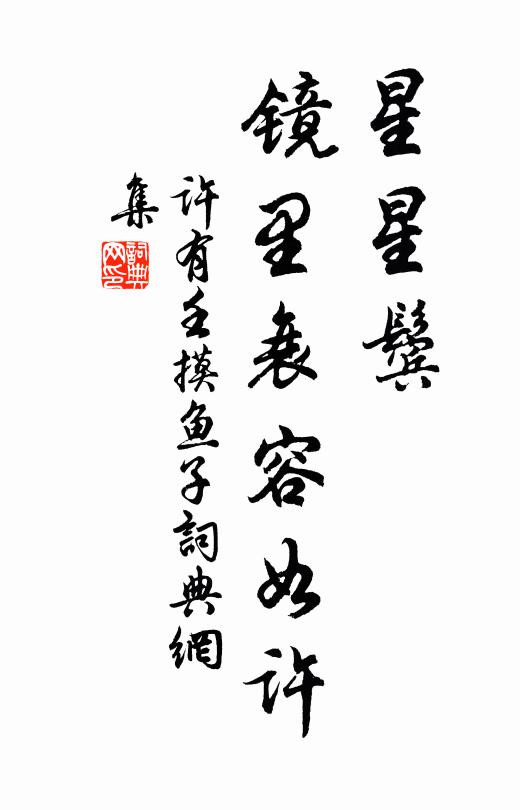 星星鬓
镜里衰容如许
许有壬摸鱼子詞典網
集
詞典网印